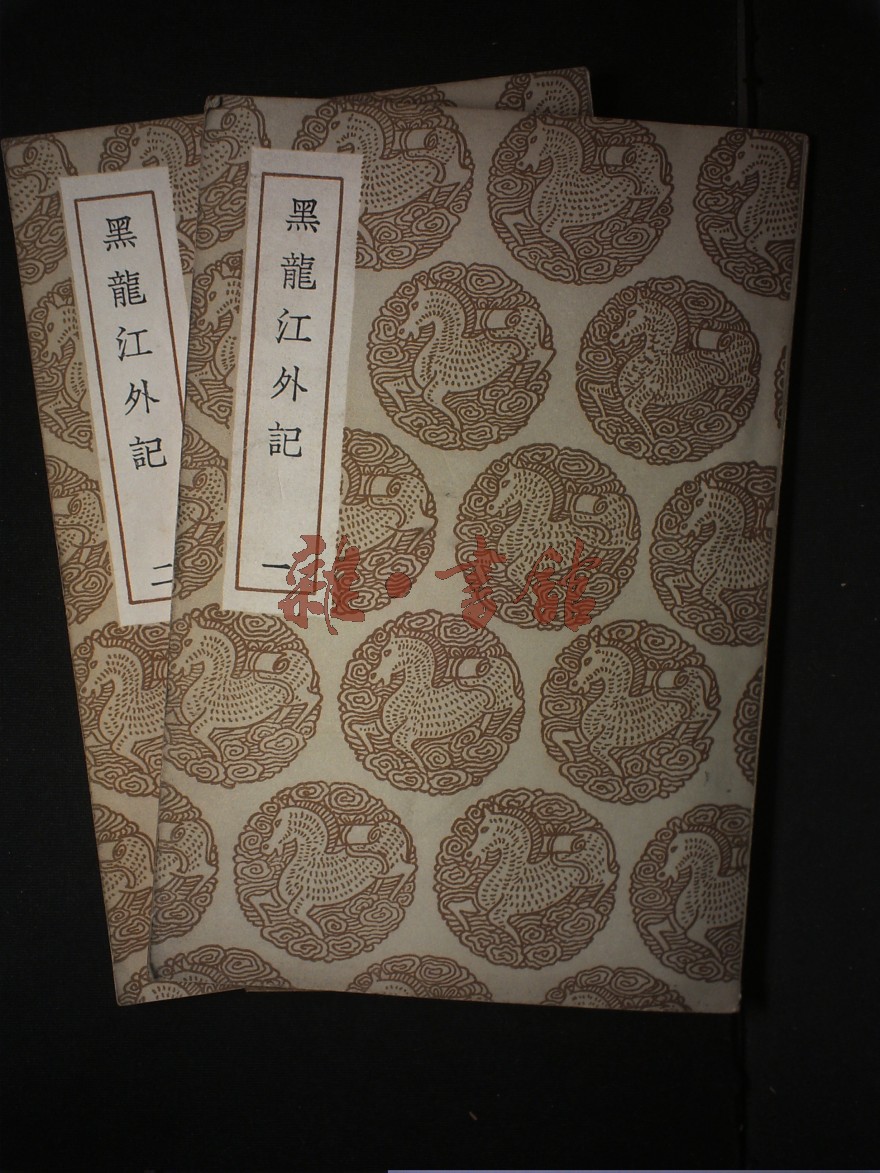 黑龍江外記
二
黑龍江外記
一
雜·書館